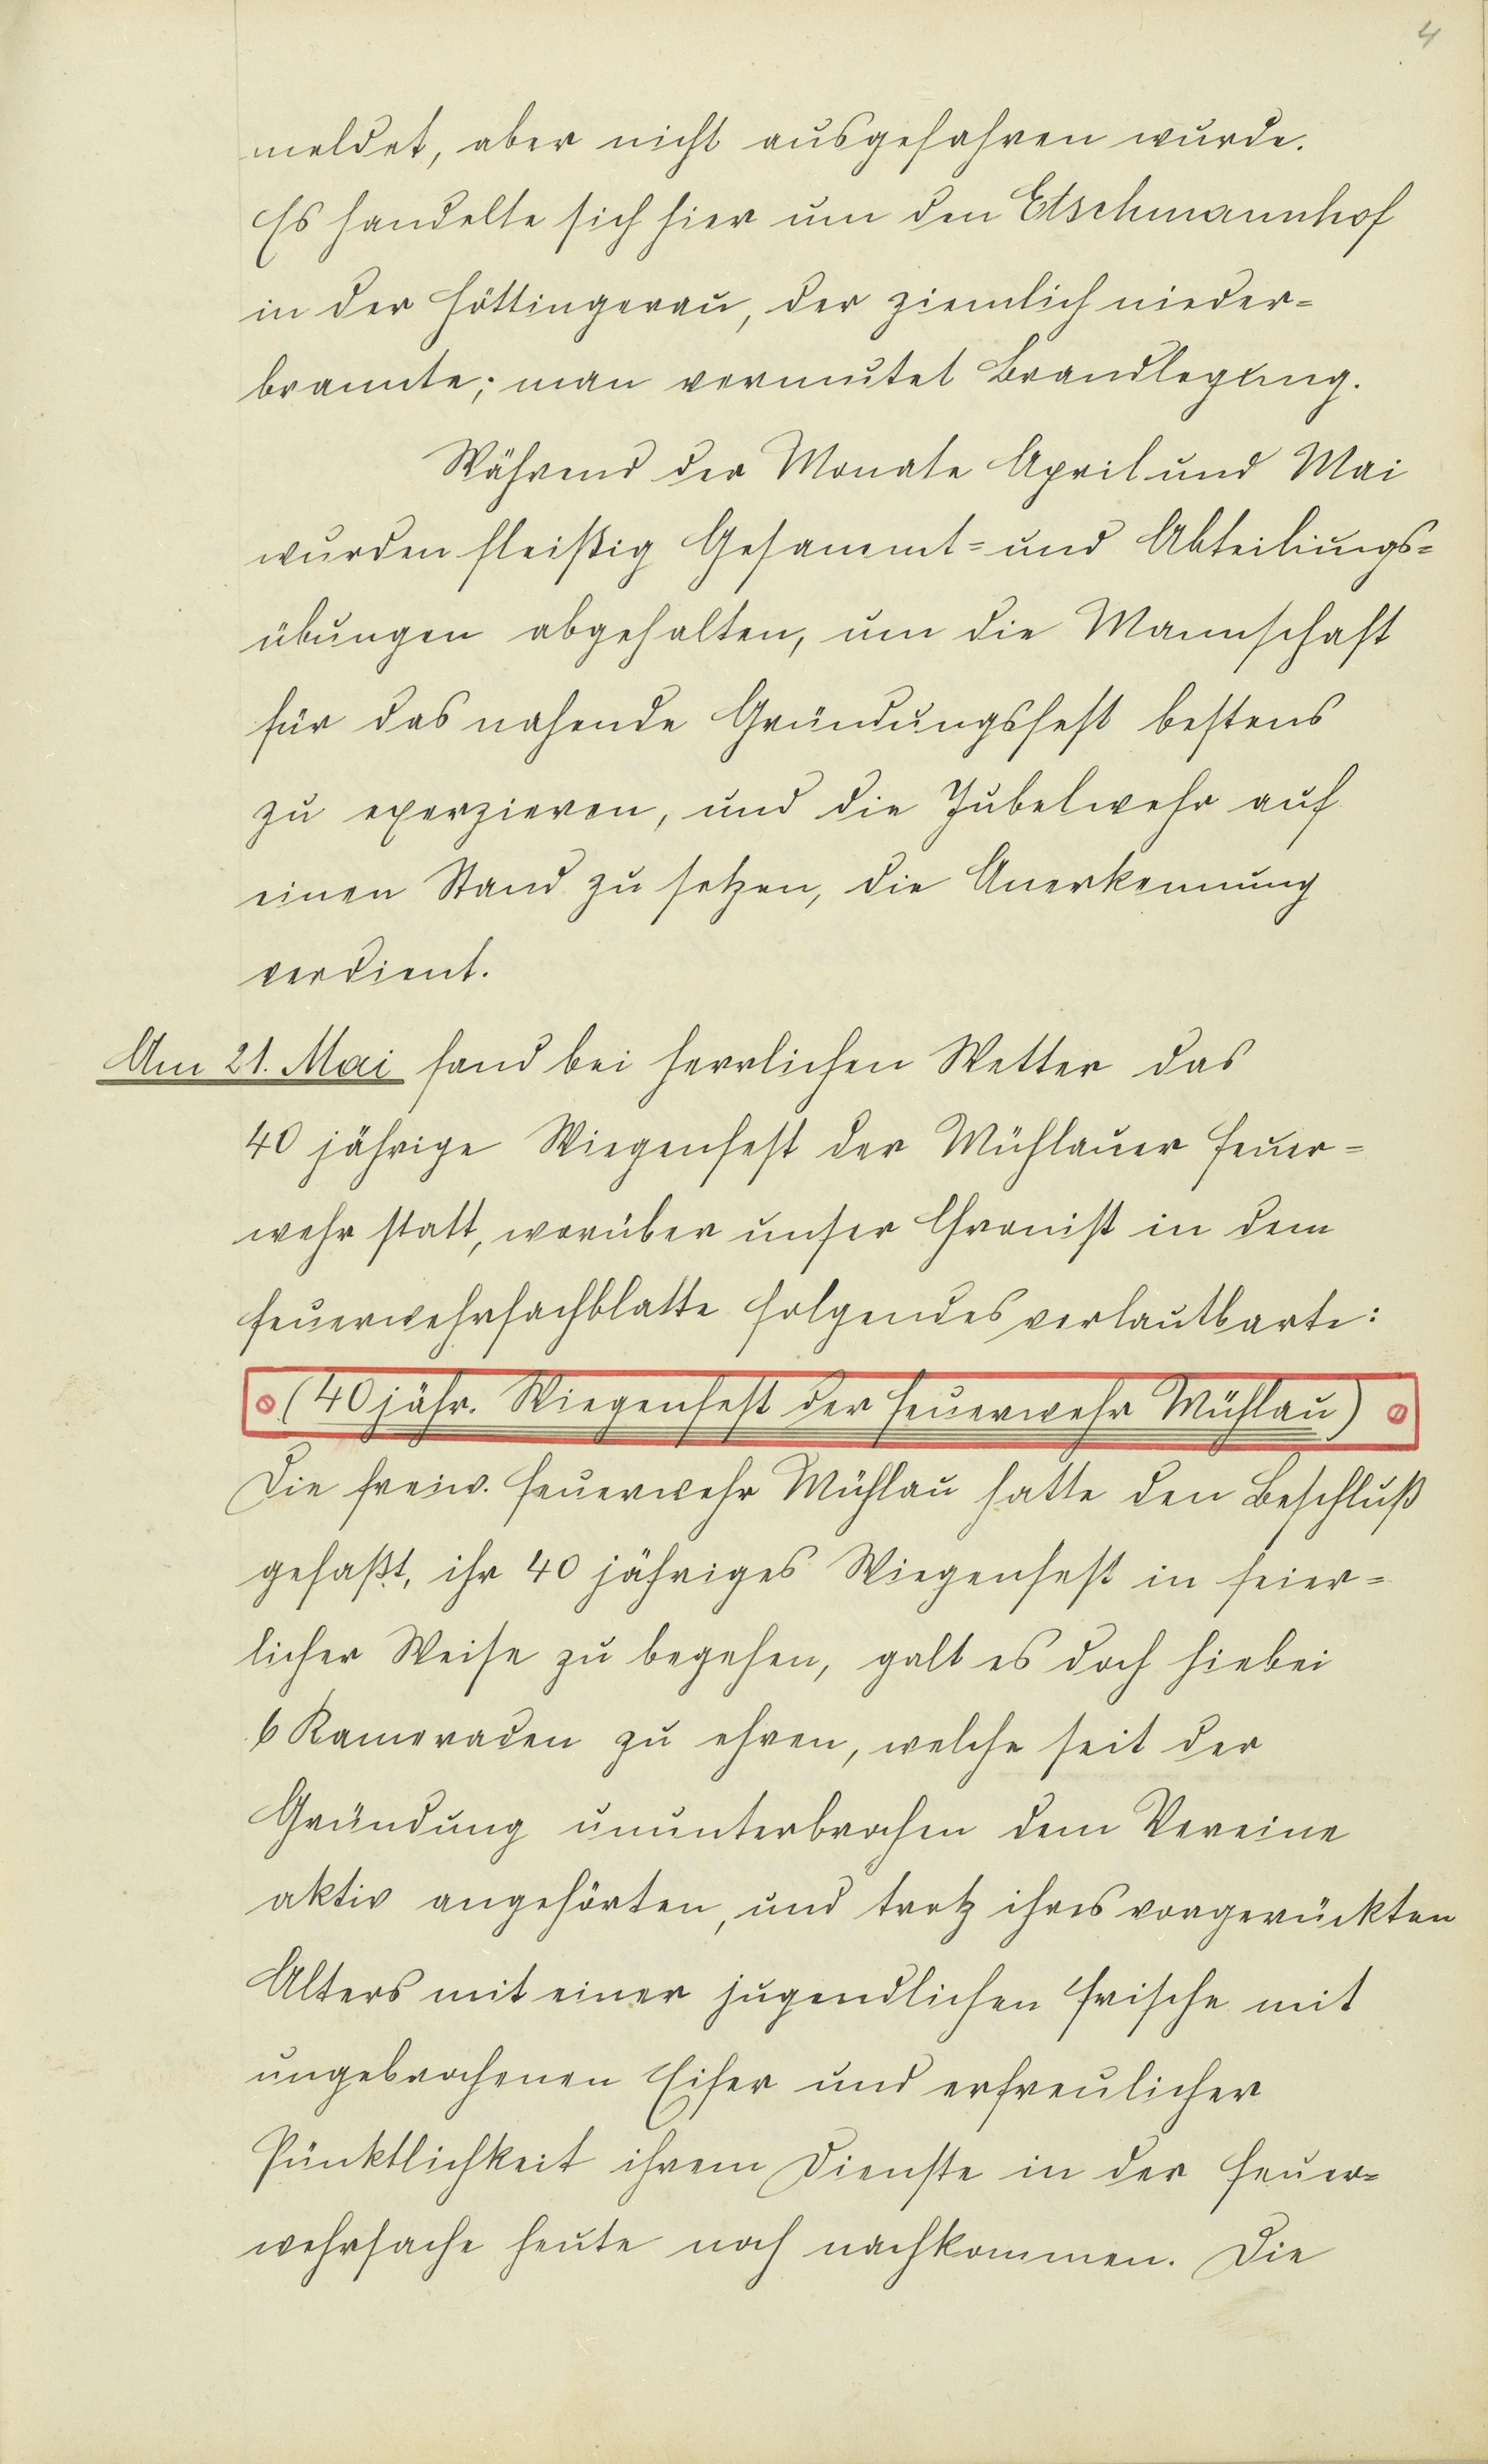 4
meldet, aber nicht ausgefahren wurde.
Es handelte sich hier um den Etschmannhof
in der Höttingerau, der ziemlich nieder=
brannte; man vermutet Brandlegung.
Während der Monate April und Mai
wurden fleißig Gesammt= und Abteilungs=
übungen abgehalten, um die Mannschaft
für das nahende Gründungsfest bestens
zu exerzieren, und die Jubelwehr auf
einen Stand zu setzen, die Anerkennung
verdient.
Am 21. Mai fand bei herrlichen Wetter das
40 jährige Wiegenfest der Mühlauer Feuer=
wehr statt, worüber unser Chronist in dem
Feuerwehrfachblatte folgendes verlautbarte:
(40 jähr. Wiegenfest der Feuerwehr Mühlau)
Die freiw. Feuerwehr Mühlau hatte den Beschluß
gefaßt, ihr 40 jähriges Wiegenfest in feier=
licher Weise zu begehen, galt es doch hiebei
6 Kameraden zu ehren, welche seit der
Gründung ununterbrochen dem Vereine
aktiv angehörten, und trotz ihres vorgerückten
Alters mit einer jugendlichen Frische mit
ungebrochenen Eifer und erfreulicher
Pünktlichkeit ihrem Dienste in der Feuer=
wehrsache heute noch nachkommen. Die